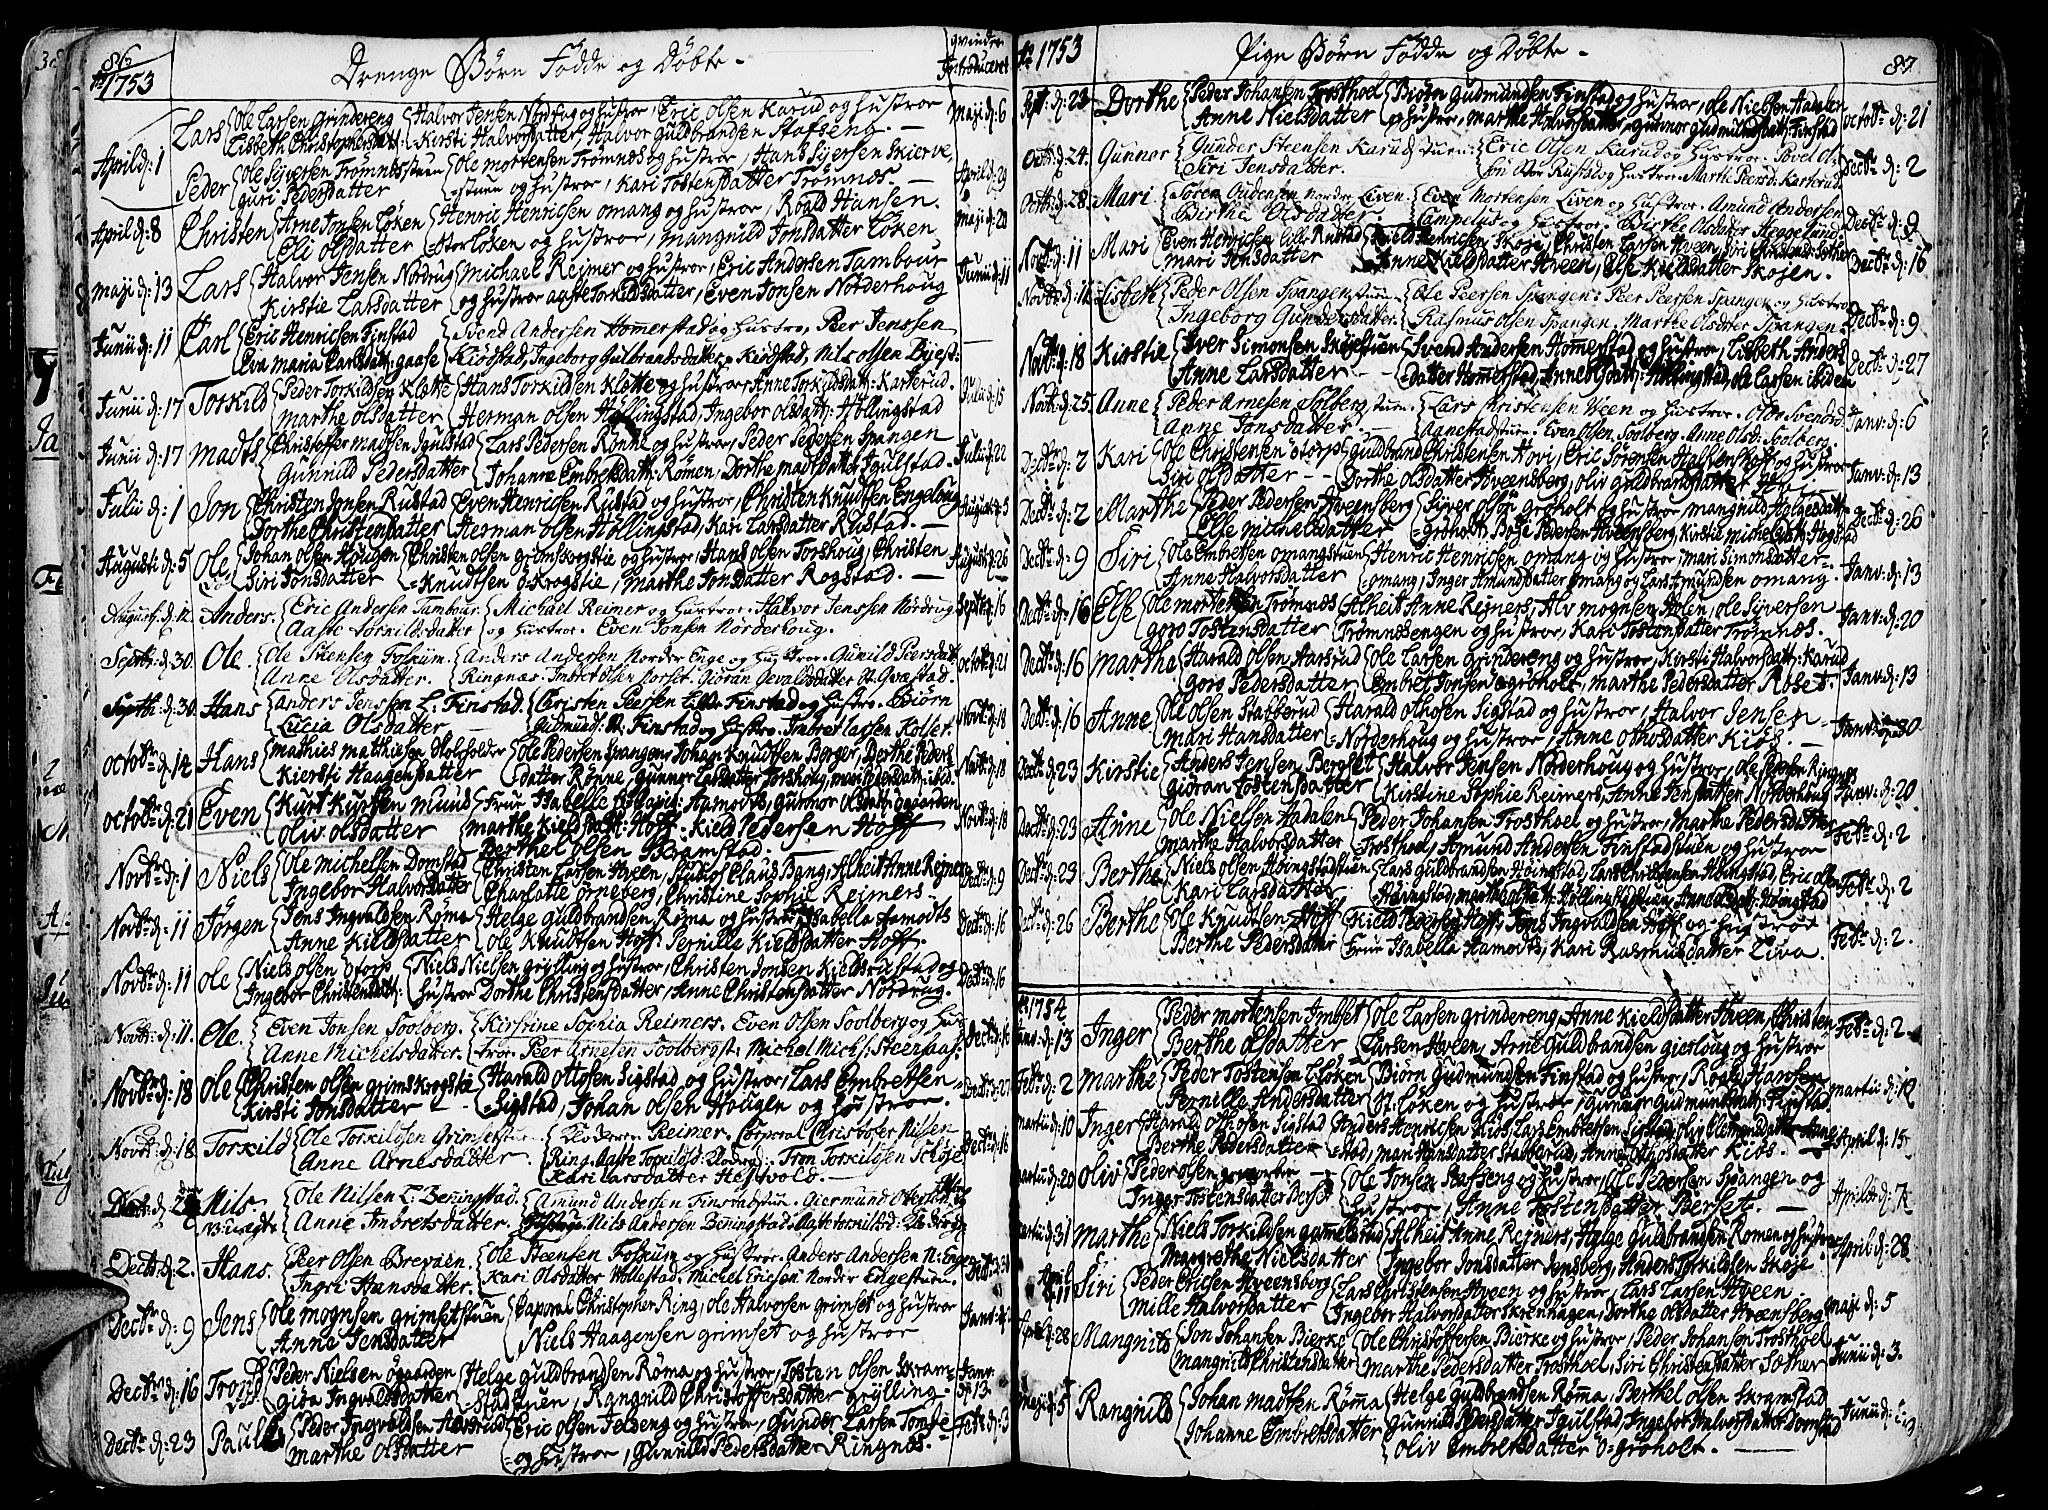 86
Ao 1753
Drenge Børn Fødde og Døbte
qvinder
Introduceret
April d: 1
Lars
Ole Larsen Grindereng
Lisbeth Christophersdatt:
Halvor Jensen Nordrug og hustroe, Eric Olsen Karud og hustroe
Kirsti Halvorsdatter Halvor Guldbrandsen Stafseng.
Maji d: 6
Peder
Ole Syversen Trømnesstuen
Guri Pedersdatter
Ole Mortensen Trømnes og hustroe, Hans Syersen Skierve
stuen og hustroe, Kari Tostensdatter Trømnes.
April d: 29
April d: 8
Christen
Arne Jonsen Løken
Eli Olsdatter
Henric Henricsen Omang og hustroe, Roald Hansen
Storløken og hustroe, Mangnild Jonsdatter Løken
Maji d: 20
Maji d: 13
Lars
Halvor Jensen Nordrug
Kirstie Larsdatter
Michael Rejmer og hustroe, Eric Andersen Tambour
og hustroe Aaste Torkildsdatter, Even Jonsen Norderhoug
Junii d: 11
Junii d: 11
Carl
Eric Henricsen Finstad
Eva Maria Carlsdatt: Gaase
Svend Andersen Hommerstad og hustroe, Peer Jenssen
Kiøstad, Ingeborg Gulbrandsdatter Kiøstad, Nils Olsen Byest:
Junii d: 17
Torkild
Peder Torkildsen Kløtte
Marthe Olsdatter
Hans Torkildsen Kløtte og hustroe Anne Torkildsdatt: Karterud
Herman Olsen Høllingstad, Ingebor Olsdatt: Høllingstad
Julii d: 15
Junii d: 17
Madts
Christoffer Madtsen Igulstad
Gunnild Pedersdatter
Lars Pedersen Rønne og hustroe, Peder Pedersen Spangen
Johanne Embretsdatt: Rømen, Dorthe Madtsdatter Igulstad.
Julii d: 22
Julii d: 1
Jon
Christen Jonsen Rustad
Dorthe Christensdatter
Even Henricsen Rustad og hustroe, Christen Knudtsen Engeloug
Herman Olsen Høllingstad, Kari Larsdatter Rustad.
August d: 5
Augusti d: 5
Ole
Johan Olsen Hougen
Siri Jonsdatter
Christen Olsen Grimskrogstie og hustroe, Hans Olsen Torshoug, Christen
Knudtsen Ø Krogstie, Marthe Jonsdatter Rogstad.
August d: 26
August. d: 12
Anders.
Eric Andersen Tambour.
Aaste Torkildsdatter
Michael Reimer og Hustroe. Halvor Jenssen Nordrug
og Hustroe. Even Jonsen Norderhoug.
Septb d: 16
Septb: d: 30.
Ole.
Ole Steensen Folsium.
Anne Olsdatter.
Anders Andersen Nordre Enge og Hustroe. Gunild Peersdatt
Ringnæs. Imbret Olsen Horset. Giøran Gevaldsdatter
Octob: d: 21
Septb. d: 30.
Hans
Anders Jenssen L. Finstad.
Lucia Olsdatter
Christen Peersen Lille Finstad og Hustro. Biørn
Gudmunds: St: Finstad og Hustro. Imbret Larsen Kolset.
Novb: d: 18
Octobr d: 14
Hans
Mathies Matthiesen Holsfolder
Kiersti Haagensdatter
Ole Pedersen Spangen, Johan Knudtsen Borger, Berthe Peders
datter Rønne, Gunnor Larsdatter Torshoug, Mari Peersdatt: ibid.
Novb: d: 18
Octobr d: 21
Even
Kurt Kurtsen Muund
Oliv Olsdatter
Frue Isabelle Aamodts, Gunnor Olsdatt: Øgaarden
Marthe Kieldsdatt: Hoff. Kield Pedersen Hoff
Berthel Olsen Skramstad.
Novb: d: 18
Novbr d: 1
Niels
Ole Michelsen Domstad
Ingebor Halvorsdatter
Christen Larsen Hveen, Studios Claus Bang, Alheit Anne Rejmer
Charlotte Ørneberg, Christine Sophie Reimers.
Decb: d: 9
Novbr d: 11
Jørgen
Jens Ingvaldsen Røma
Anne Kieldsdatter
Helge Guldbrandsen Røma og hustroe Isabella Aamodts
Ole Knudtsen Hoff. Pernille Kieldsdatter Hoff.
Decb: d: 16
Novbr d: 11
Ole
Niels Olsen Østorp
Ingebor Christensdatt:
Niels Nielsen Grylling og hustroe, Christen Jonsen Kielsrustad og
hustroe Dorthe Christensdatter, Anne Christensdatter Nordrug.
Decb: d: 16
Novbr d: 11.
Ole.
Even Jonsen Soolberg.
Anne Michelsdatter.
Kirstine Sophia Reimers. Even Olsen Soolberg og Hus
troe. Peer Arnesen Soolbergst: Michel Michs: Steensaas:
Decb: d: 16
Novbr d: 18
Ole
Christen Olsen Grimskrogstie
Kirsti Jonsdatter
Harald Ottosen Sigstad og hustroe, Lars Embretsen
Sigstad, Johan Olsen Hougen og hustroe.
Decb: d: 27
Novbr d: 18
Torkild
Ole Torkildsen Grimsetstuen
Anne Arnesdatter.
Reimer. Corporal Christofer Nilsen
Ring. Aaste Torkildsd: Tron Torkildsen Schøje
Kari Larsdatter Hestvold.
Decb: d: 16
Decb: d. 2
Nils
Ole Nilsen L. Beningstad.
Anne Imbretsdatter.
Amund Andersen Finstadstuen. Giermund Olsen
Nils Andersen Beningstad.
Decb: d: 2.
Hans.
Peer Olsen Brevaen.
Ingri Hansdatter.
Ole Steensen Folsium og Hustroe. Anders Andersen N: Enge
Kari Olsdatter Vollestad. Michel Ericsen Nordre Engestuen.
Decb: d: 30
Decbr d: 9
Jens
Ole Mognsen Grimsetstuen
Anne Jensdatter
Caporal Christopher Ring, Ole Halvorsen Grimset og hustroe
Niels Haagensen Grimset og hustroe
Janv: d: 6
Decbr d: 16
Trond
Peder Nielsen Øgaarden
Gioa Ingvaldsdatter
Helge Guldbrandsen Røma og hustroe, Tosten Olsen Skram
Stadstuen, Rangnild Christoffersdatter Grylling
Janv: d: 13
Decbr d: 23
Paul
Peder Ingvaldsen Aarsrud
Marthe Olsdatter
Eric Olsen Jelseng og hustroe, Gunder Larsen Tomte
og hustroe, Gunnild Pedersdatter Ringnes.
Febr d: 3
Ao 1753
Pige Børn Fødde og Døbte
87.
Sept: d: 23
Dorthe
Peder Johansen Trosthoel
Anne Nielsdatter
Biørn Gudmundsen Finstad og hustroe, Ole Nielsen Aadalen
og hustroe, Marthe Halvorsdatter, Gunnor Gudmundsdatt: Finstad
Octobr d: 21
Octb: d: 24.
Gunnor
Gunder Steensen Karudstuen.
Siri Jensdatter.
Eric Olsen Karud og Hustroe. Povel Ol
sen Rustad og Hustroe. Marthe Peersd: Karterud.
Decbr d: 2
Octb: d: 28.
Mari
Søren Gudensen Nordre Liven
Birthe Olsdatter
Even Mortensen Liven og Hustroe. Amund Andersen
Hustroe. Birthe Olsdatter Heggelund
Decbr d: 9
Novbr d: 11
Mari
Even Henricsen Lill-Rustad
Mari Jensdatter
Kield Henricsen Skøje, Christen Larsen Hveen, Siri
Anne Kieldsdatter Hveen, Else Kieldsdatter Skøjen.
Decbr d: 16
Novbr d: 11
Lisbeth
Peder Olsen Spangenstuen
Ingeborg Gundersdatter.
Ole Peersen Spangen. Peer Peersen Spangen og Hustroe
Rasmus Olsen Spangen. Marthe Olsdatter Spangen
Decbr d: 9
Novbr d: 18
Kirstie
Iver Simonsen Skøjestuen
Anne Larsdatter
Svend Andersen Hommerstad og hustroe, Lisbeth Anders
datter Hommerstad, Anne Olsdatt: Høllingstad, Ole Larsen ibidem
Decbr d: 27
Novbr d: 25.
Anne
Peder Arnesen Solbergstuen.
Anne Jonsdatter.
Lars Christensen Ween og Hustroe. Ole Svendsen
Aanestadstuen. Even Olsen Soolberg. Anne Olsd: Soolberg.
Janv: d: 6
Decbr d: 2
Kari
Ole Christensen Østorp
Siri Olsdatter
Guldbrand Christensen Hovi, Eric Sørensen Halvenhoff og hustroe
Dorthe Olsdatter Hveensberg, Oliv Guldbrandsdatter
Janv: d: 13
Decbr d: 2
Marthe
Peder Pedersen Hveensberg
Else Michelsdatter
Syver Olsen Groholt og hustroe, Mangnild Holgesdatter
Groholt, Boye Pedersen Hveensberg, Kirstie Michelsdatt: Hogstad
Decbr d: 26
Decbr d: 9
Siri
Ole Embretsen Omangstuen
Anne Halvorsdatter
Henric Henricsen Omang og hustroe, Mari Simonsdatter
Omang, Inger Amundsdatter Omang og Lars Amundsen Omang.
Janv: d: 13
Decbr d: 16
Else
Ole Mortensen Trømnes
Goro Tostensdatter
Alheit Anne Rejners, Alv Mognsen Holen, Ole Syversen
Trømnesengen og hustroe, Kari Tostensdatter Trømnes.
Janv: d: 20
Decbr d: 16
Martha
Harald Olsen Aarsrud
Goro Pedersdatter
Ole Larsen Grindereng og hustroe, Kirsti Halvorsdatt: Karud
Embret Jonsen Øgroholt, Marthe Pedersdatter Roset.
Janv: d: 13
Decbr d: 16
Anne
Ole Olsen Stabberud
Mari Hansdatter
Harald Othosen Sigstad og hustroe, Halvor Jensen
Norderhoug og hustroe, Anne Othosdatter Kiøs.
Janv: d: 30
Decbr d: 23
Kirstie
Anders Jensen Berghet
Giøran Tostensdatter
Halvor Jensen Norderhoug og hustroe, Ole Pedersen Ringnes
Kirstine Sophie Reimers, Anne Jensdatter Norderhoug
Janv: d: 20
Decbr d: 23
Anne
Ole Nielsen Aadalen
Marthe Halvorsdatter
Peder Johansen Trosthoel og hustroe, Marthe Pedersdatter
Trosthoel, Amund Andersen Finstadstuen og hustroe
Febr: d: 2
Decbr d: 23
Berthe
Niels Olsen Høingstadstuen
Kari Larsdatter
Lars Guldbrandsen Høingstad, Lars Christensen Høingstad, Eric Olsen
Høingstad, Marthe Olsdatt: Høllingstadstuen, Anne Høingstad
Febr d: 2
Decbr d: 26
Berthe
Ole Knudtsen Hoff
Berthe Pedersdatter
Kield Pedersen Hoff, Jens Ingvaldsen Hoff og hustroe
Frue Isabella Aamodts, Kari Rasmusdatter Liva.
Febr d: 2.
Ao 1754
Janv: d: 13
Inger
Peder Mortensen Imset
Berthe Olsdatter
Ole Larsen Grindereng, Anne Kieldsdatter Hveen, Christen
Larsen Hveen, Arne Guldbrandsen Gierloug og hustroe
Febr d: 2
Febr d: 2
Marthe
Peder Tostensen L:Løken
Pernelle Andersdatter
Biørn Gudmundsen Finstad og hustroe, Roald Hansen
St: Løken og hustroe, Gunnor Gudmundsdatter Finstad
Martii d: 10
Martii d: 10
Inger
Harald Othosen Sigstad
Berthe Pedersdatter
Anders Henricsen Kiøs, Lars Embretsen Sigstad, Oliv Clemensdatter
stad, Mari Hansdatter Stabberud, Anne Othosdatter Kiøs.
April d: 15
Martii d: 20
Oliv
Peder Olsen
Inger Tostensdatter Berset
Ole Jonsen Stafseng og hustroe, Ole Pedersen Spangen og
hustroe, Anne Tostensdatter Berset.
April d: 7
Martii d: 31
Marthe
Niels Torkildsen Gammelstad
Margrethe Nielsdatter
Alheit Anne Rejners, Helge Guldbrandsen Romen og hustroe
Ingebor Jonsdatter Jonsberg, Anders Torkildsen Skøje
April d: 28
April d: 11
Siri
Peder Ericsen Hveensberg
Mille Halvorsdatter
Lars Christensen Hveen og hustroe, Lars Larsen Hveen
Ingebor Halvorsdatter Skrenhagen, Dorthe Olsdatter Hveensberg
Maji d: 5
April d: 28
Mangnild
Jon Johansen Bierke
Mangnild Christensdatter
Ole Christoffersen Bierke og hustroe, Peder Johansen Trosthoel
Marthe Pedersdatter Trosthoel, Siri Christensdatter Sother
Junii d: 3.
Maji d: 5
Rangnild
Johan Madtsen Rømma
Johanne Embretsdatter
Helge Guldbrandsen Rømma, Berthel Olsen Skramstad
Gunnild Pedersdatter Igulstad, Ingebor Halvorsdatter Domstad
Oliv Embretsdatter Ø-Groholt.